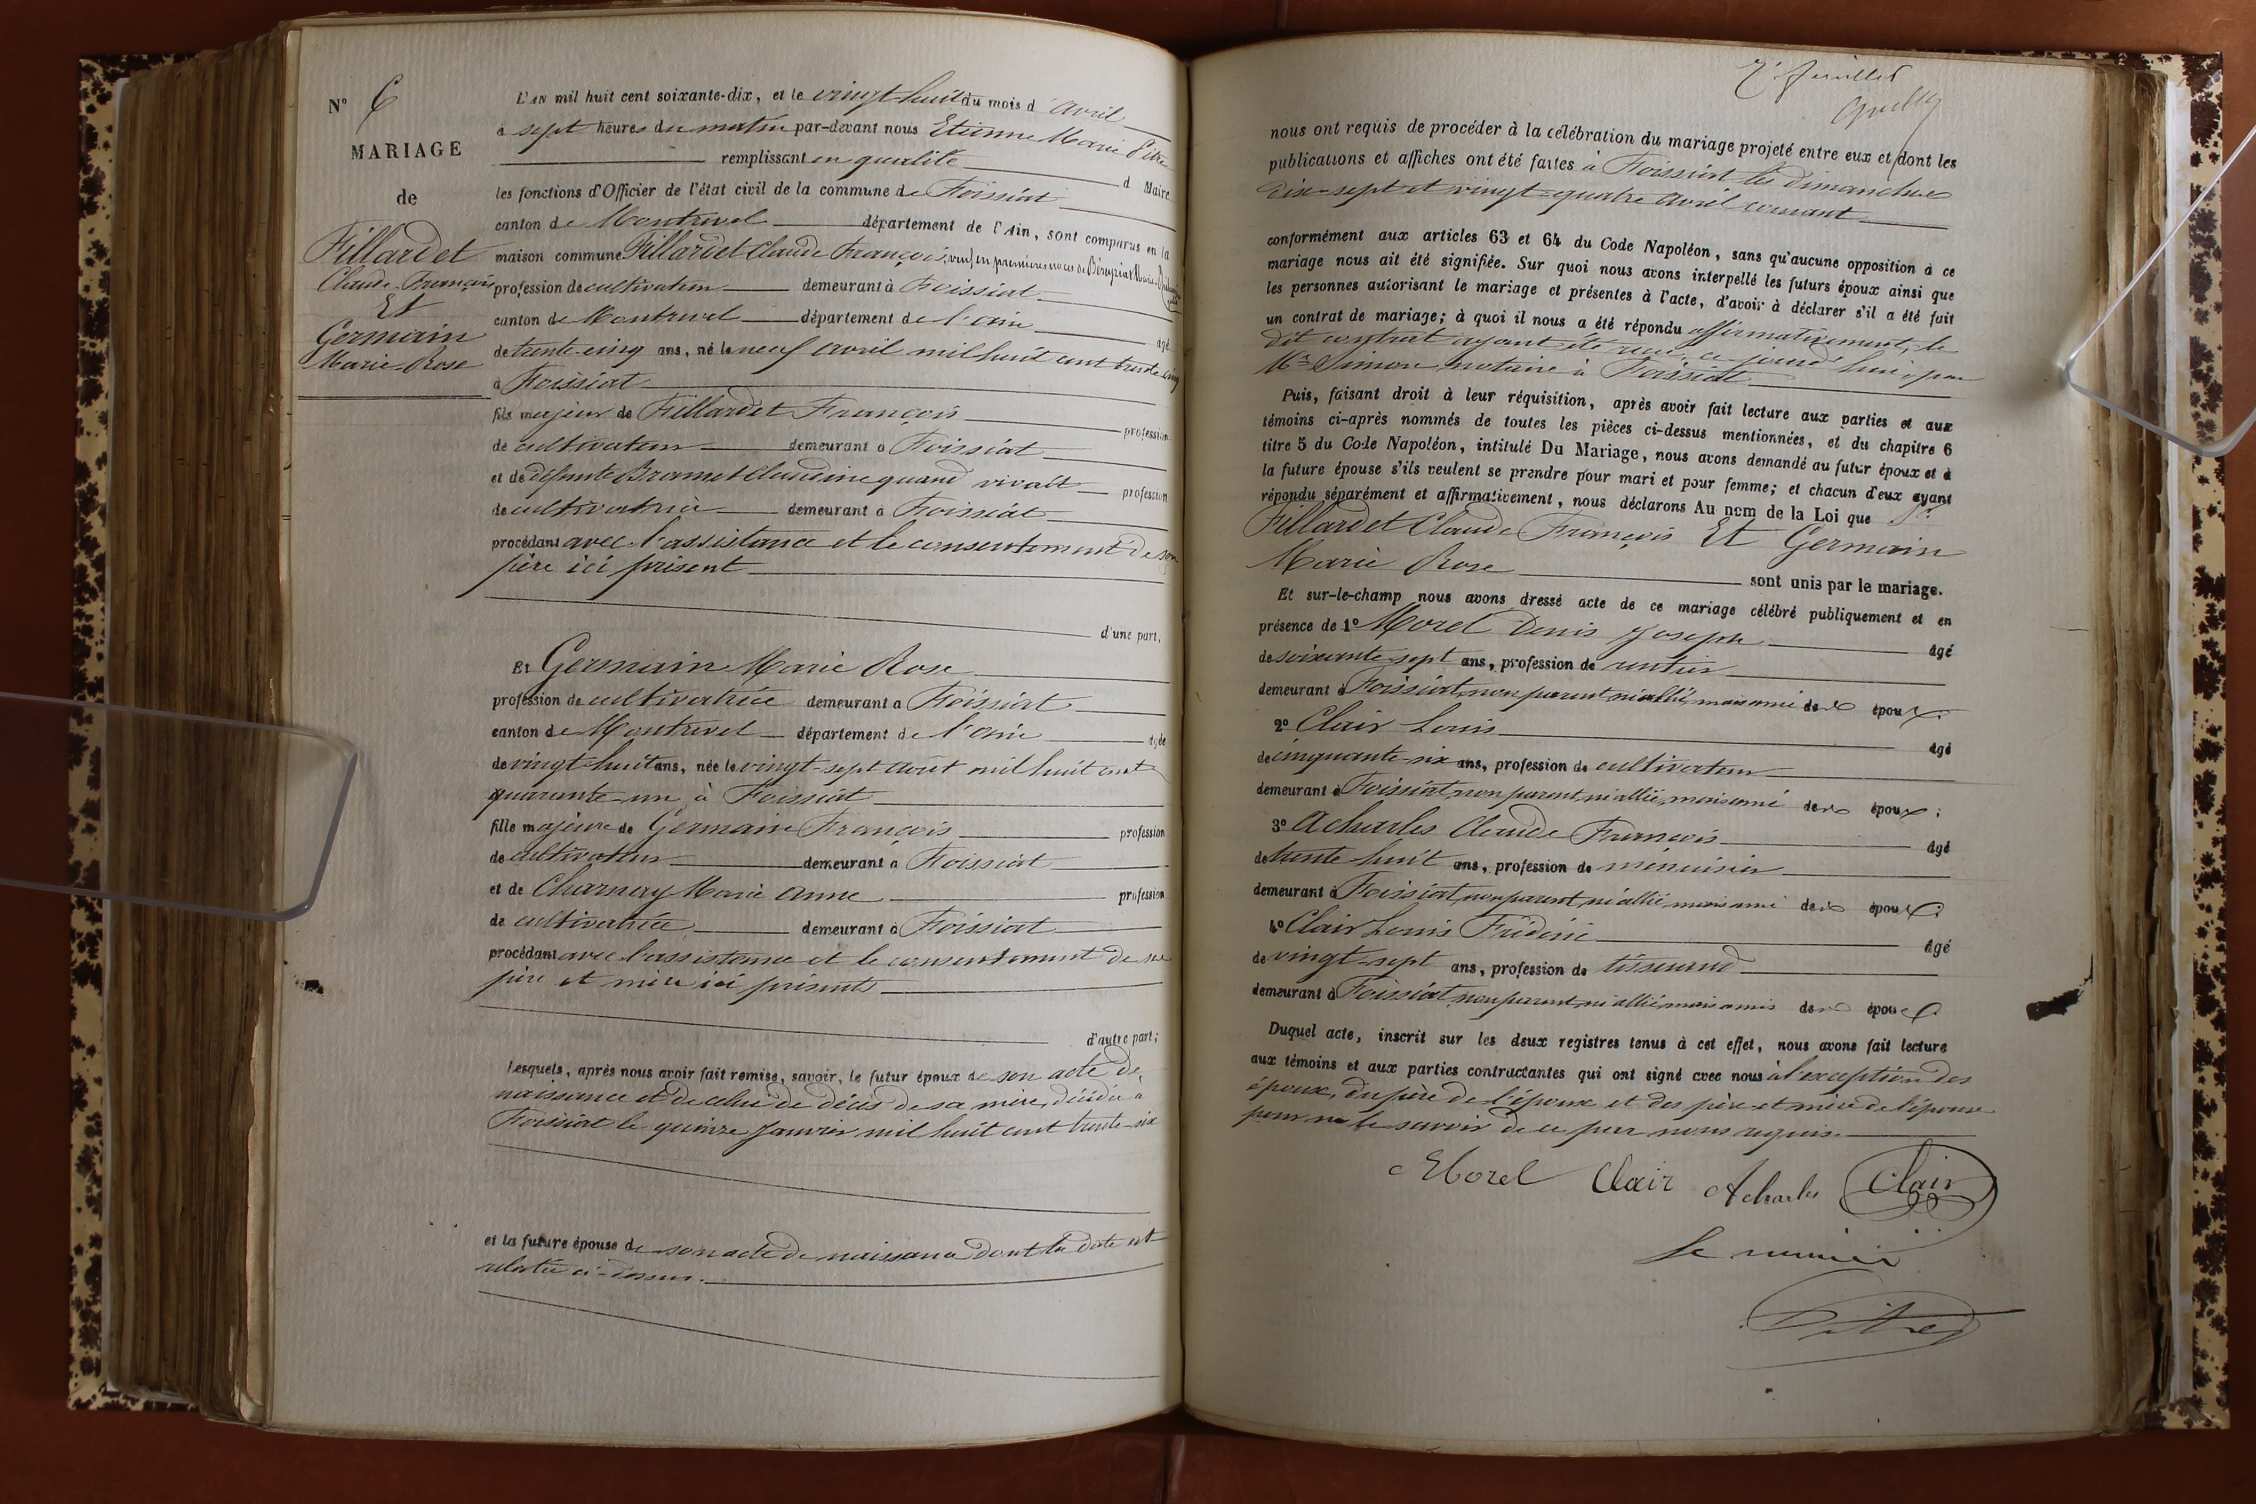 N° 6
MARIAGE
de
Fillardet
Claude-François
Et
Germain
Marie-Rose
L'AN mil huit cent soixante-dix, et le vingt huit du mois d'avril
à sept heures du matin par-devant nous Etienne Marie Pitre
remplissant en qualité d Maire
les fonctions d'Officier de l'état civil de la commune de Foissiat
canton de Montrevel département de l'Ain, sont comparus en la
maison commune Fillardet Claude François, veuf en premières noces de Marie
profession de cultivateur demeurant à Foissiat
canton de Montrevel département de l'ain âgé
de trente-cinq ans, né le neuf avril mil huit cent trente cinq
à Foissiat
fils majeur de Fillardet François profession
de cultivateur demeurant à Foissiat
et de défunte Bramet Claudine quand vivait profession
de cultivatrice demeurant à Foissiat
procédant avec l'assistance et le consentement de son
père ici présent
d'une part,
Et Germain Marie Rose
profession de cultivatrice demeurant à Foissiat
canton de Montrevel département de l'ain âgée
de vingt huit ans, née le vingt-sept août mil huit cent
quarante-un à Foissiat
fille majeure de Germain François profession
de cultivateur demeurant à Foissiat
et de Charnay Marie Anne profession
de cultivatrice demeurant à Foissiat
procédant avec l'assistance et le consentement de ses
père et mère ici présents
d'autre part;
Lesquels, après nous avoir fait remise, savoir, le futur époux de son acte de
naissance et de celui de décès de sa mère, décédée à
Foissiat le quinze janvier mil huit cent trente-six
et la future épouse de son acte de naissance dont la date est
relatée ci-dessus.
7e feuillet
nous ont requis de procéder à la célébration du mariage projeté entre eux et dont les
publications et affiches ont été faites à Foissiat les dimanches
dix-sept et vingt-quatre avril courant
conformément aux articles 63 et 64 du Code Napoléon, sans qu'aucune opposition à ce
mariage nous ait été signifiée. Sur quoi nous avons interpellé les futurs époux ainsi que
les personnes autorisant le mariage et présentes à l'acte, d'avoir à déclarer s'il a été fait
un contrat de mariage; à quoi il nous a été répondu affirmativement, le
dit contrat ayant été reçu ce jourd'hui, par
Me Simon notaire à Foissiat
Puis, faisant droit à leur réquisition, après avoir fait lecture aux parties et aux
témoins ci-après nommés de toutes les pièces ci-dessus mentionnées, et du chapitre 6
titre 5 du Code Napoléon, intitulé Du Mariage, nous avons demandé au futur époux et à
la future épouse s'ils veulent se prendre pour mari et pour femme; et chacun d'eux ayant
répondu séparément et affirmativement, nous déclarons Au nom de la Loi que
Fillardet Claude François Et Germain
Marie Rose sont unis par le mariage.
Et sur-le-champ nous avons dressé acte de ce mariage célébré publiquement et en
présence de 1° Morel Denis Joseph âgé
de soixante-sept ans, profession de rentier
demeurant à Foissiat, non parent, ni allié, mais ami des époux.
2° Clair Louis âgé
de cinquante-six ans, profession de cultivateur
demeurant à Foissiat, non parent, ni allié, mais ami des époux;
3° Acharles Claude François âgé
de trente huit ans, profession de menuisier
demeurant à Foissiat, non parent, ni allié, mais ami des époux.
4° Clair Louis Fréderic âgé
de vingt-sept ans, profession de tisserand
demeurant à Foissiat, non parent, ni allié, mais amis des époux
Duquel acte, inscrit sur les deux registres tenus à cet effet, nous avons fait lecture
aux témoins et aux parties contractantes qui ont signé avec nous à l'exception des
époux, du père de l'époux et des père et mère de l'épouse
pour ne le savoir de ce par nous requis.
Morel Clair Acharles Clair
Le maire
Pitre